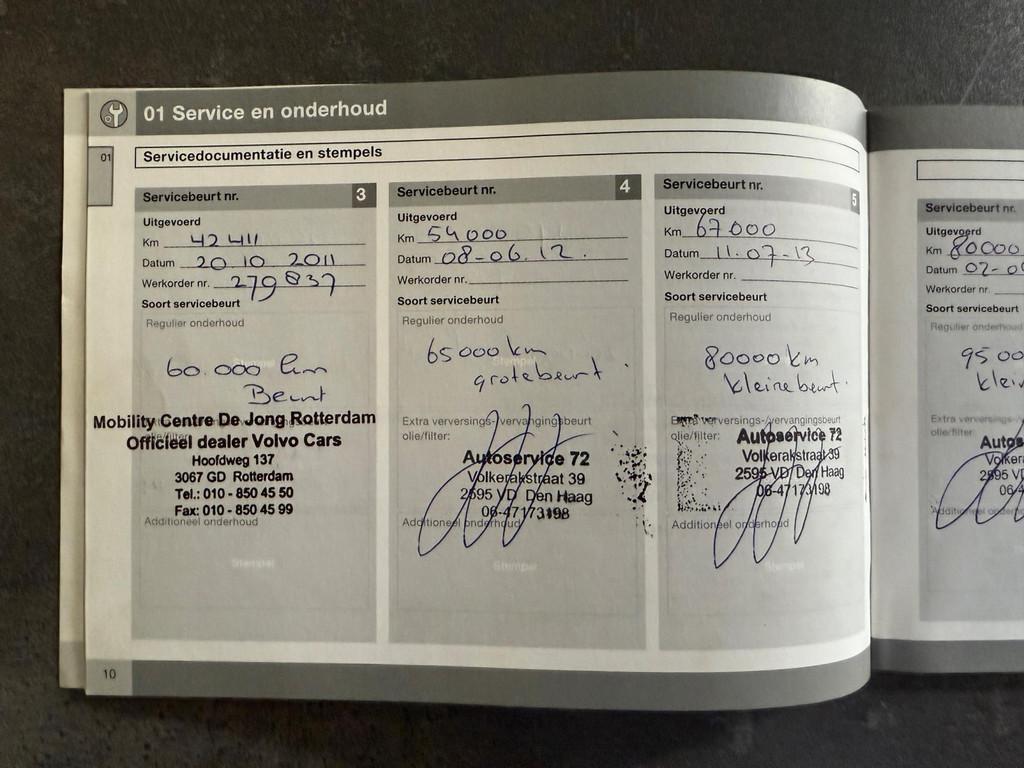 01 Service en onderhoud
01
Servicedocumentatie en stempels
Servicebeurt nr. 3
Uitgevoerd
Km 42 411
Datum 20 10 2011
Werkorder nr. 279837
Soort servicebeurt
Regulier onderhoud
60.000 km
Beurt
Mobility Centre De Jong Rotterdam
Officieel dealer Volvo Cars
Hoofdweg 137
3067 GD Rotterdam
Tel.: 010 - 850 45 50
Fax: 010 - 850 45 99
Additioneel onderhoud
Stempel
Servicebeurt nr. 4
Uitgevoerd
Km 54000
Datum 08-06.12.
Werkorder nr.
Soort servicebeurt
Regulier onderhoud
Stempel
65000 km
grote beurt.
Extra verversings-/vervangingsbeurt
olie/filter:
Autoservice 72
Volkerakstraat 39
2595 VD Den Haag
06-47173198
Additioneel onderhoud
Stempel
Servicebeurt nr. 5
Uitgevoerd
Km 67000
Datum 11-07-13
Werkorder nr.
Soort servicebeurt
Regulier onderhoud
80000 km
kleine beurt.
Extra verversings-/vervangingsbeurt
olie/filter:
Autoservice 72
Volkerakstraat 39
2595 VD Den Haag
06-47173198
Additioneel onderhoud
Stempel
10
Servicebeurt nr.
Uitgevoerd
Km 80000
Datum 02-0
Werkorder nr.
Soort servicebeurt
Regulier onderhoud
9500
klei
Extra verversings-/
olie/filter:
Autos
Volker
2595 V
06-4